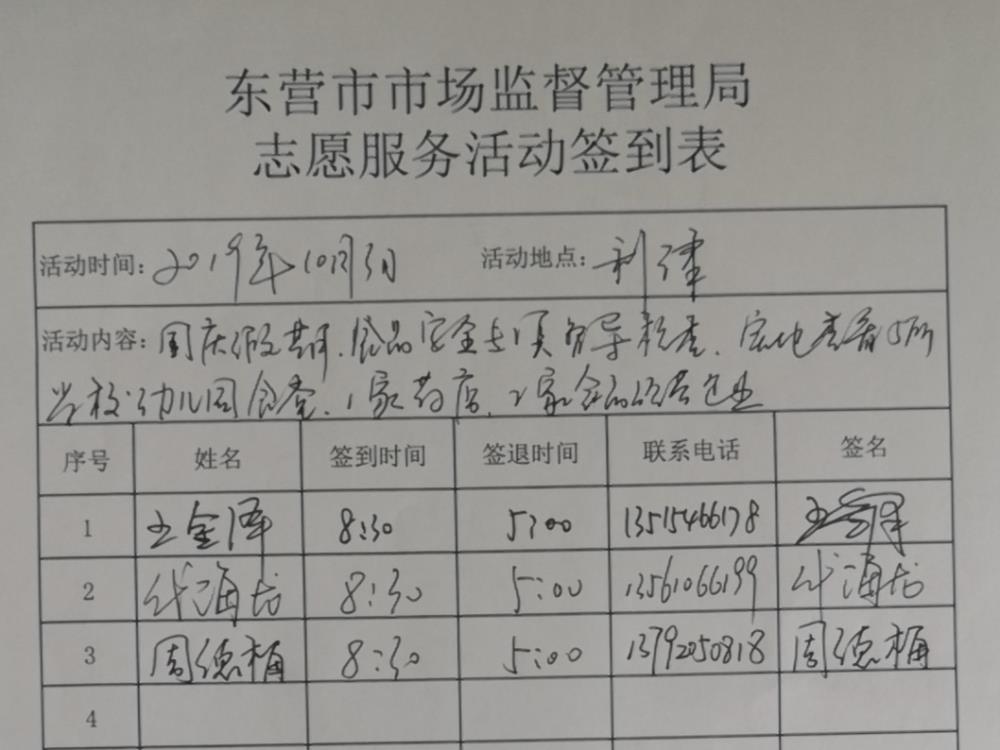 东营市市场监督管理局
志愿服务活动签到表
活动时间：2019年10月3日 活动地点：利津
活动内容：国庆假期食品安全专项督导检查，实地查看5所
学校幼儿园食堂、1家药店、2家食品经营企业
序号 姓名 签到时间 签退时间 联系电话 签名
1 王金泽 8:30 5:00 13515466178 王金泽
2 代海龙 8:30 5:00 13561066199 代海龙
3 周德桶 8:30 5:00 13792050818 周德桶
4